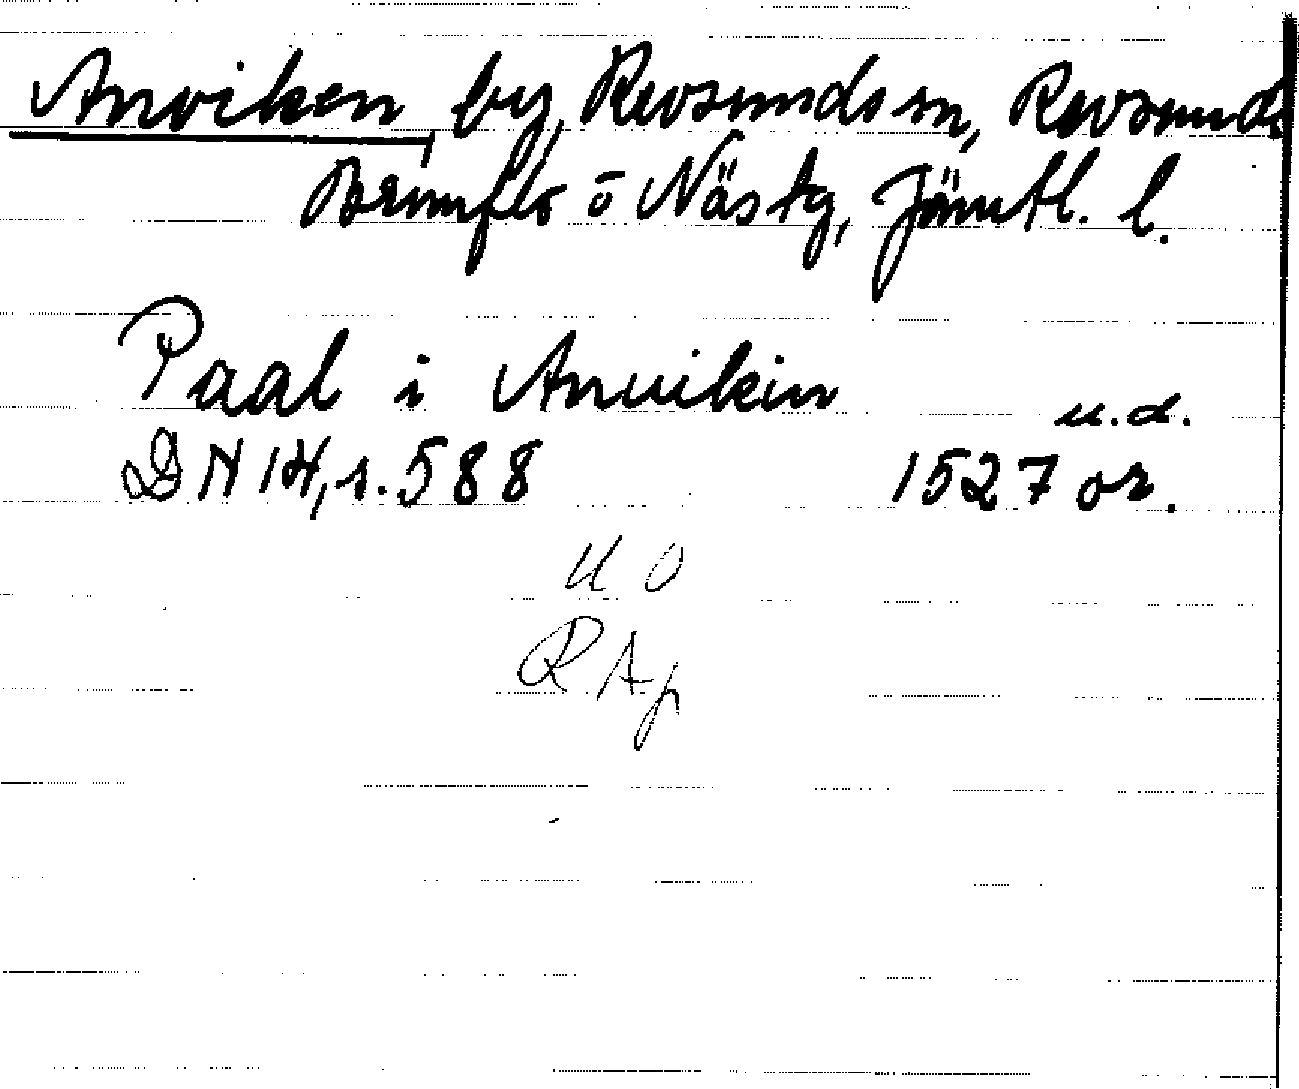 Anviken, by, Revsunds sn, Revsunds
Brunflo o Näs tg, Jämtl. l.
Paal i Anuikin u.d.
DN 14, s. 588 1527 or.
U O
RAp